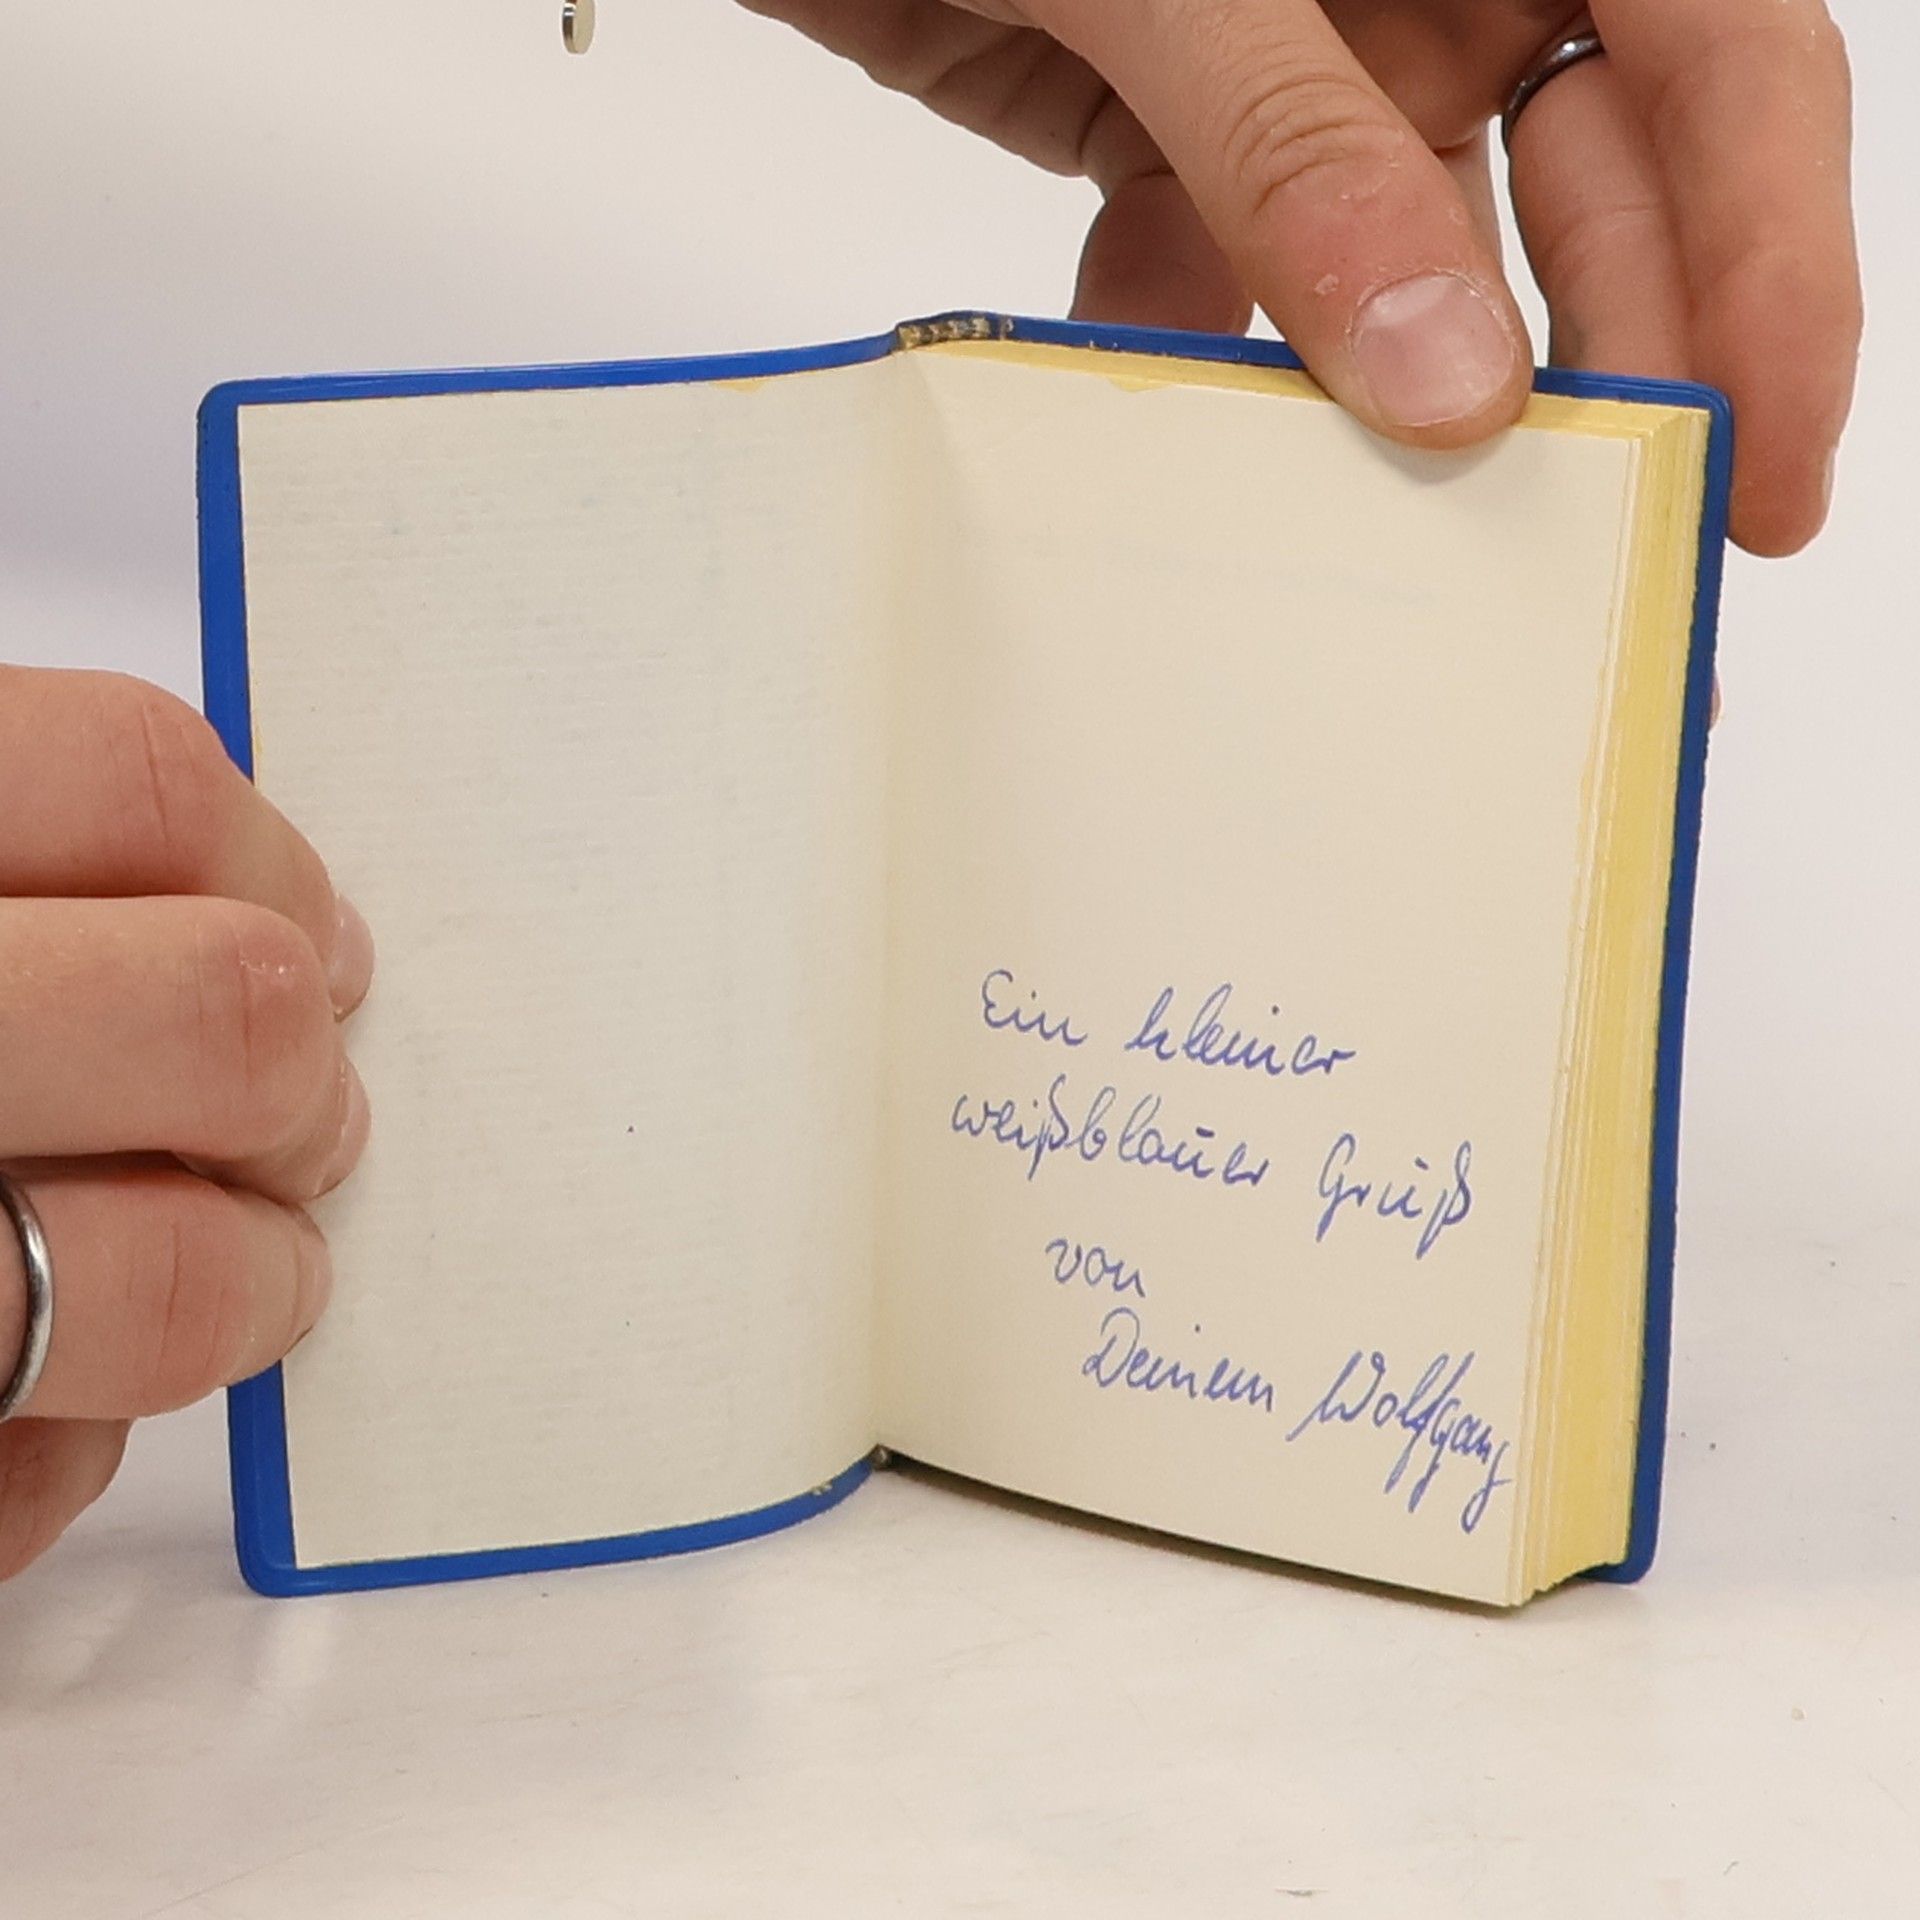 Ein kleiner
weißblauer Gruß
von
Deinem Wolfgang